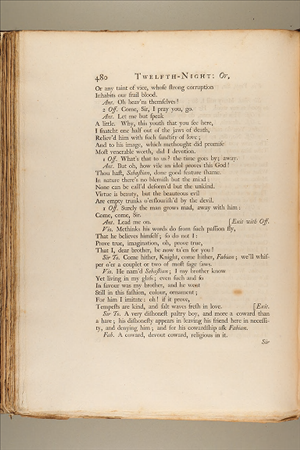 480 TWELFTH-NIGHT: Or,
Or any taint of vice, whose strong corruption
Inhabits our frail blood.
Ant. Oh heav'ns themselves!
2 Off. Come, Sir, I pray you, go.
Ant. Let me but speak
A little. Why, this youth that you see here,
I snatcht one half out of the jaws of death,
Reliev'd him with such sanctity of love;
And to his image, which methought did promise
Most venerable worth, did I devotion.
1 Off. What's that to us? the time goes by; away.
Ant. But oh, how vile an idol proves this God!
Thou hast, Sebastian, done good feature shame.
In nature there's no blemish but the mind:
None can be call'd deform'd but the unkind.
Virtue is beauty, but the beauteous evil
Are empty trunks o'erflourish'd by the devil.
1 Off. Surely the man grows mad, away with him:
Come, come, Sir.
Ant. Lead me on. [Exit with Off.
Vio. Methinks his words do from such passion fly,
That he believes himself; so do not I:
Prove true, imagination, oh, prove true,
That I, dear brother, be now ta'en for you!
Sir To. Come hither, Knight, come hither, Fabian; we'll whis-
per o'er a couplet or two of most sage saws.
Vio. He nam'd Sebastian; I my brother know
Yet living in my glass; even such and so
In favour was my brother, and he went
Still in this fashion, colour, ornament;
For him I imitate: oh! if it prove,
Tempests are kind, and salt waves fresh in love. [Exit.
Sir To. A very dishonest paltry boy, and more a coward than
a hare; his dishonesty appears in leaving his friend here in necessi-
ty, and denying him; and for his cowardship ask Fabian.
Fab. A coward, devout coward, religious in it.
Sir